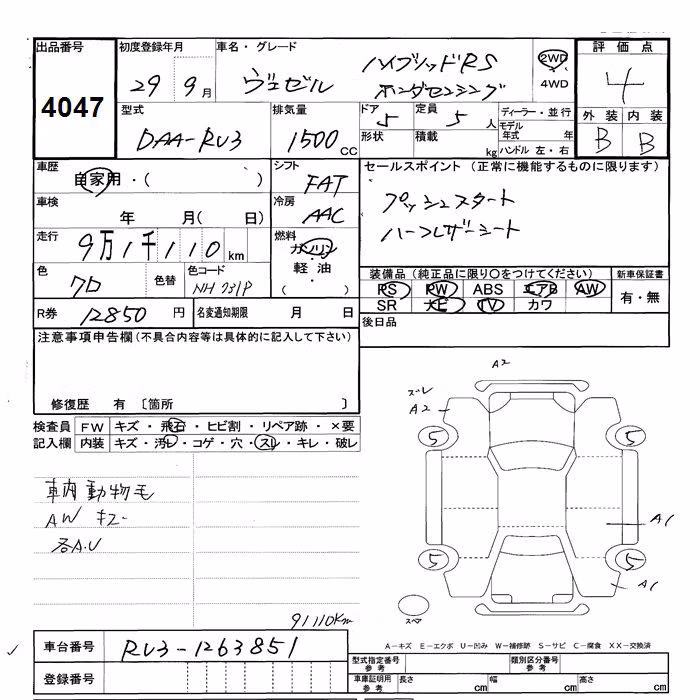 出品番号 初度登録年月 車名・グレード 評価点
4047 29 9月 ヴェゼル ハイブリッドRS 2WD 4
ホンダセンシング 4WD
型式 排気量 ドア 定員 ディーラー・並行 外装 内装
DAA-RU3 1500 CC 5 5人 モデル年式 年 B B
形状 積載 kg ハンドル 左・右
車歴 自家用・( ) シフト FAT セールスポイント (正常に機能するものに限ります)
車検 年 月( 日) 冷房 AAC プッシュスタート
走行 9万1千110km 燃料 ガソリン・軽油・( ) ハーフレザーシート
色 クロ 色替 色コード NH731P 装備品 (純正品に限り○をつけてください) 新車保証書
PS PW ABS エアB AW 有・無
SR ナビ TV カワ
R券 12850円 名変通知期限 月 日 後日品
注意事項申告欄(不具合内容等は具体的に記入して下さい)
修復歴 有 〔箇所 〕
検査員 FW キズ・飛石・ヒビ割・リペア跡・×要
記入欄 内装 キズ・汚レ・コゲ・穴・スレ・キレ・破レ
車内動物毛
AW キズー
各A.U
91110Km
A2
ズレ
A2
5 5
A1
5 5
A1
スペア
A-キズ E-エクボ U-凹み W-補修跡 S-サビ C-腐食 XX-交換済
車台番号 RU3-1263851 型式指定番号 参考 類別区分番号 参考
登録番号 車庫証明用 参考 長さ cm 幅 cm 高さ cm